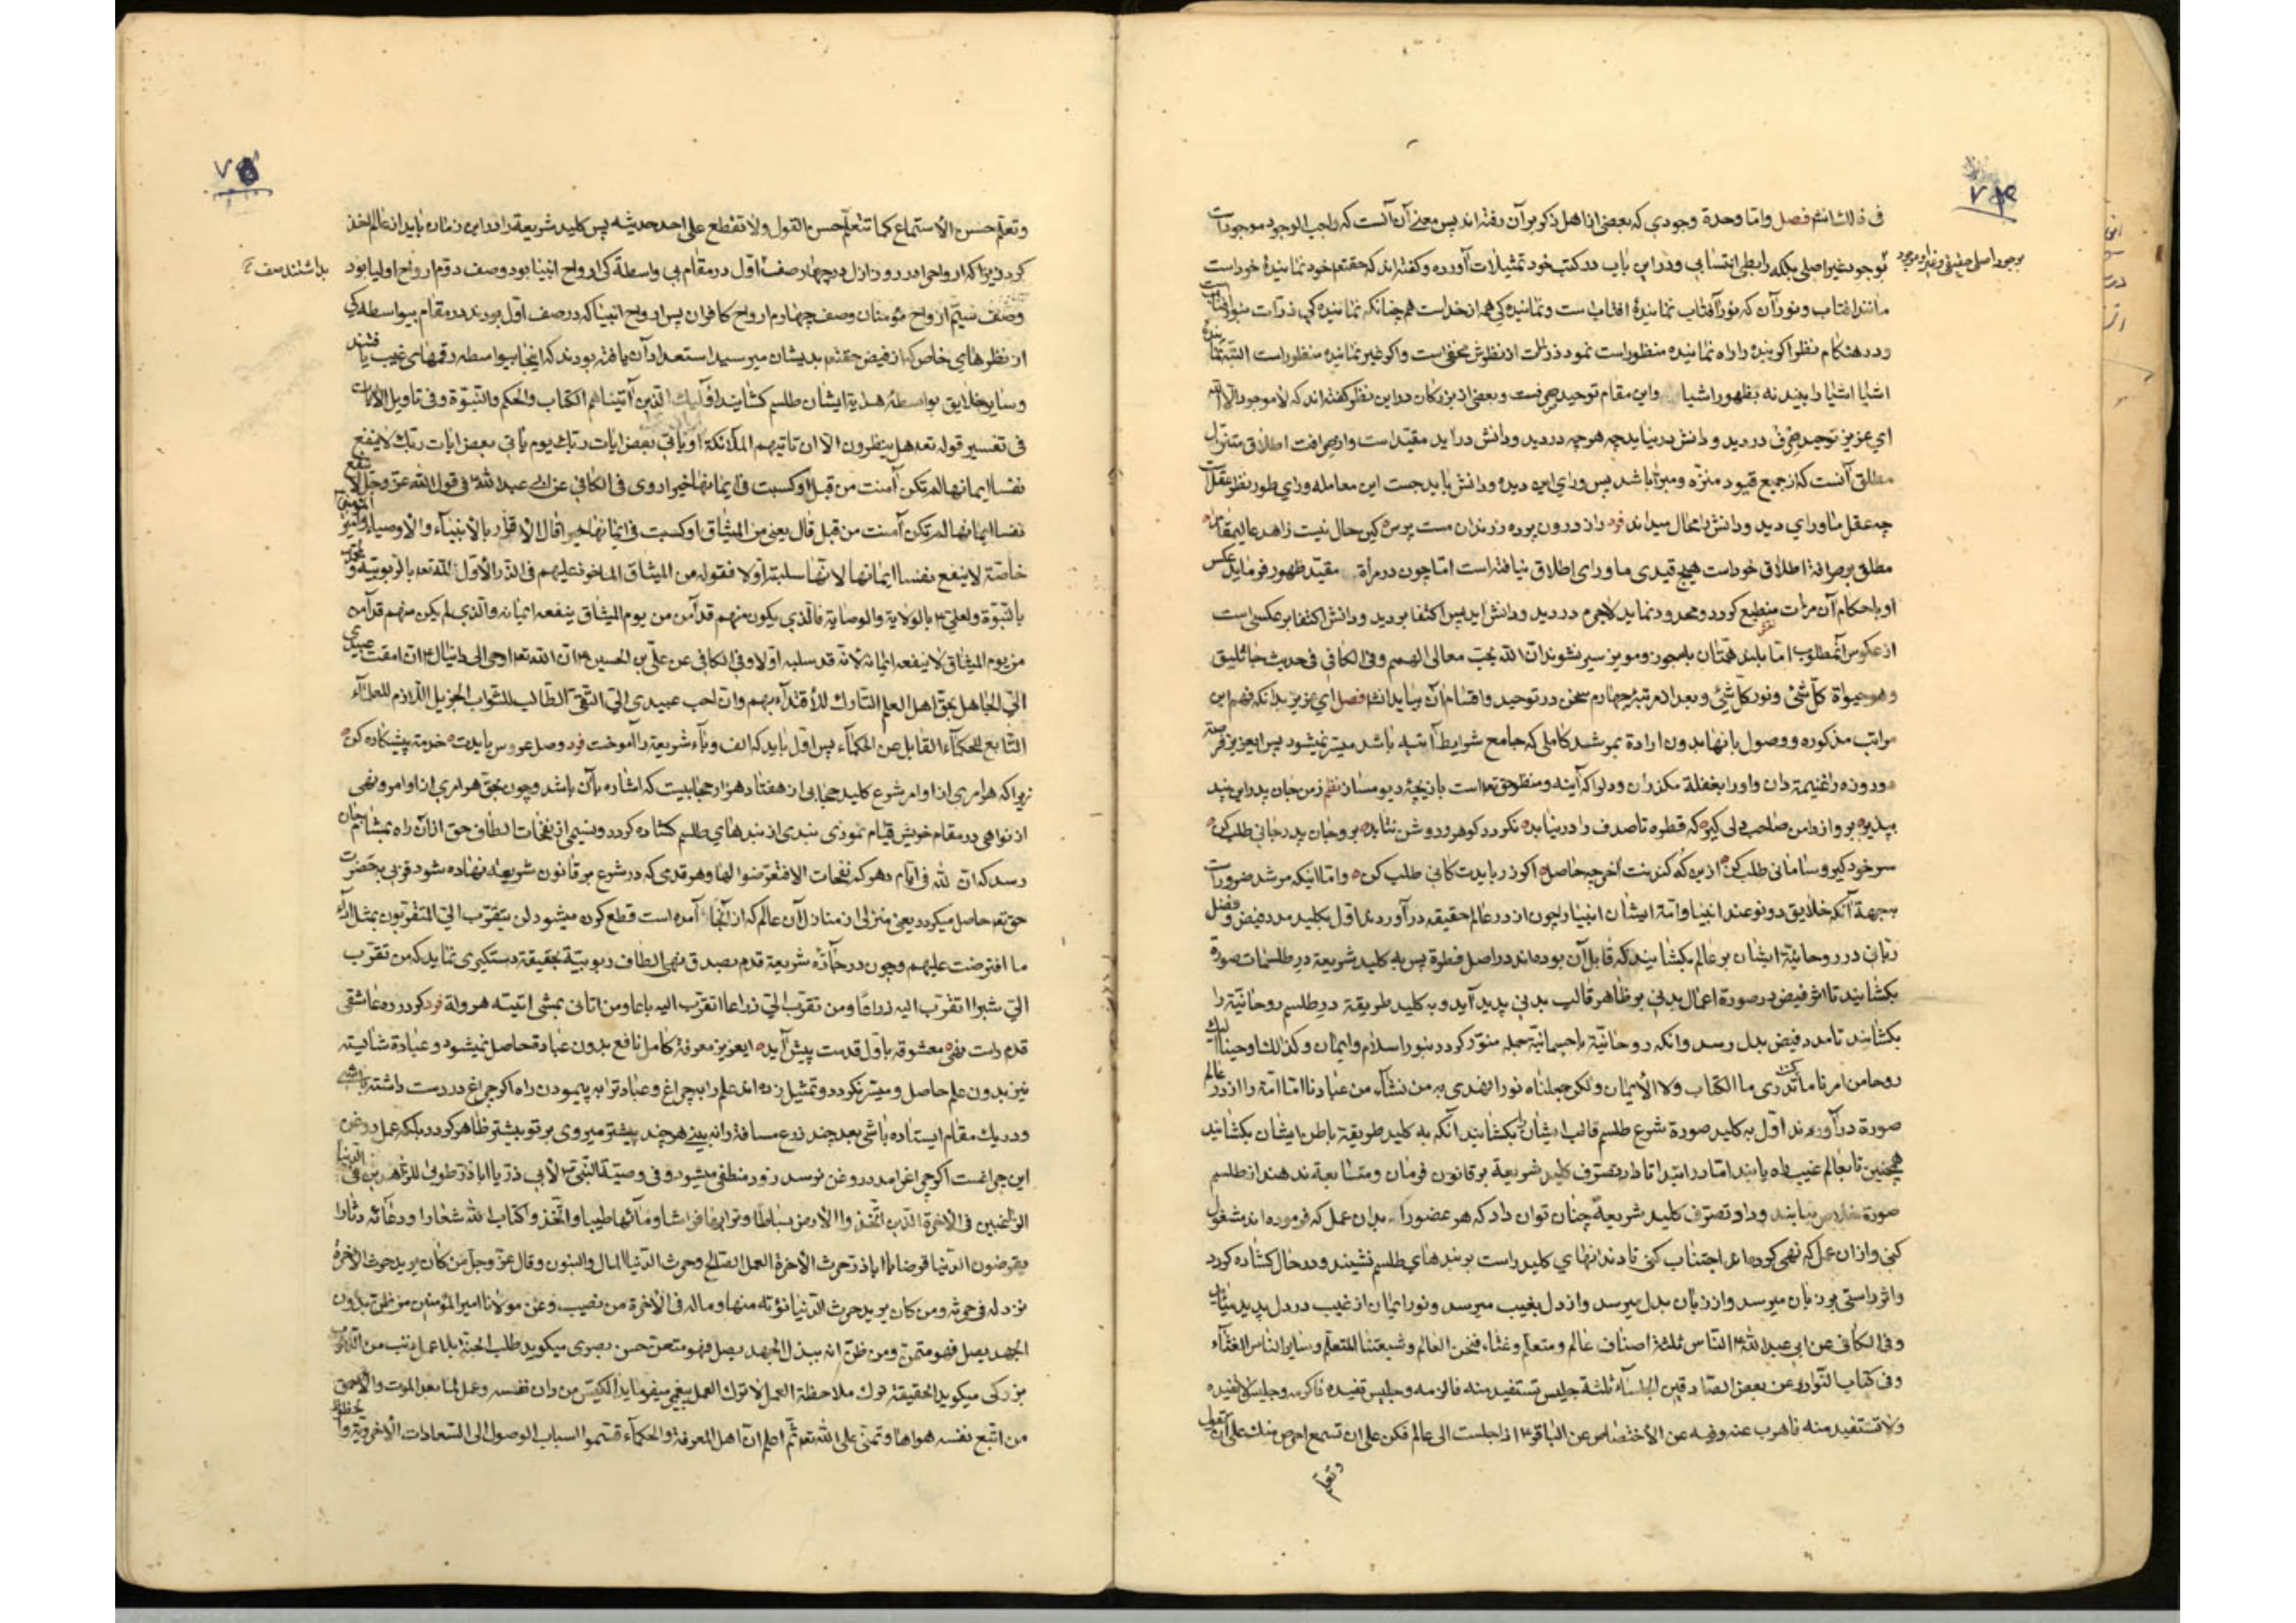 ۷۴
فی ذلك انشم فصل واما وحدة وجودي که بعضی از اهل ذکر بر آن رفته اند پس معنی آن آنست که واجب الوجود موجودات
بوجود غیر اصلی بلکه رابطی انتسابی و در این باب در کتب خود تمثیلات آورده و گفته اند که حقتعم خود نماینده خود است
مانند افتاب و نور آن که نور آفتاب نماینده افتاب است و نماینده کی هم از خداست هم چنانکه نماینده کی ذرات
و در هنکام نظر اکر بیننده را راه نماینده منظور است نمود ذرات از نظرش مخفی است و اکر غیر نماینده منظور است البته
اشیا اشیا را بیند نه بظهور اشیا واین مقام توحید صرفست و بعضی از بزرکان در این نظر گفته اند که لا موجود الا الله
اي عزیز توحید صرف در دید و دانش در نیاید چه هر چه در دید و دانش در آید مقید است و از صرافت اطلاق متنزل
مطلق آنست که از جمیع قیود منزه و مبرا باشد پس ورای این دیده و دانش باید جست این معامله ورای طور نظر عقل است
چه عقل ماورای دید و دانش را محال میداند فرد راز درون پرده ز رندان مست پرس کین حال نیست زاهد عالیمقام را
مطلق بر صرافة اطلاق خود است هیچ قیدی ماورای اطلاق نیافته است اما چون در مرأة مقید ظهور فرماید عکس
او باحکام آن مرات منطبع کردد و محدود نماید لاجرم در دید و دانش اید پس اکتفا بر دید و دانش اکتفا بر عکسی است
از عکوس آنمطلوب اما بلند همتان بجوز و مویز سیر نشوند ان الله یحب معالی الهمم وفی الکافی فی حدیث جاثلیق
وهو حیوة کل شئ ونور کل شئ و بعد از مرتبه چهارم سخن در توحید و اقسام آن بیاید انشم فصل اي عزیز بدانکه فهم این
مراتب مذکوره و وصول بانها بدون ارادة بمرشد کاملی که جامع شرایط آتیه باشد میسر نمیشود پس ایعزیز فرصة
دو روزه را غنیمة دان و او را بغفلة مکذران و دل را که آینه و منظر حق تعم است بازیچه دیو مساز نظم ز من جان پدر این پند
بپذیر برو از دامن صاحب دلی کیر که قطره تا صدف را در نیابد نکردد کوهر و روشن نتابد برو جان پدر جانی طلب کن
سر خود کیر و سامانی طلب کن ازین که کندنت آخر چه حاصل اکر زر بایدت کانی طلب کن واما اینکه مرشد ضرور است
بجهة آنکه خلایق دو نوعند انبیا و امة ایشان انبیا را چون از در عالم حقیقه در آوردند اول بکلید مدد فیض و فضل
ربانی در روحانیة ایشان بر عالم بکشایند که قابل آن بوده اند در اصل فطرة پس به کلید شریعة در طلسمات صورة
بکشایند تا اثر فیض در صورة اعمال بدنی بر ظاهر قالب بدنی پدید آید و به کلید طریقة در طلسم روحانیة را
بکشایند تا مدد فیض بدل رسد وانکه روحانیة با جسمانیة جمله منور کردد بنور اسلام وایمان وکذلك اوحینا الیك
روحا من امرنا ما کنت تدری ما الکتاب ولا الایمان ولکن جعلناه نورا نهدی به من نشآء من عبادنا اما امة را از در عالم
صورة در آوردند اول به کلید صورة شرع طلسم قالب ایشان را بکشایند آنکه به کلید طریقة باطن ایشان بکشایند
همچنین تا بعالم غیب راه یابند اما در ابتدا تا در تصرف کلید شریعة بر قانون فرمان و متابعة ندهند از طلسم
صورة خلاص نیابند و داد تصرف کلید شریعة چنان توان داد که هر عضو را بدان عمل که فرموده اند مشغول
کنی و از ان عمل که نهی کرده اند اجتناب کنی تا دندانهاي کلید راست بر بندهاي طلسم نشیند و در حال کشاده کردد
واثر راستی بر زبان میرسد و از زبان بدل میرسد و از دل بغیب میرسد و نور ایمان از غیب در دل پدید میاید
وفی الکافی عن ابی عبد الله ع الناس ثلثة اصناف عالم ومتعلم وغثاء فنحن العالم وشیعتنا المتعلم وسایر الناس الغثآء
وفی کتاب النوادر عن بعض الصادقین الجلساء ثلثة جلیس تستفید منه فالزمه وجلیس تفیده فاکرمه وجلیس لا تفیده
ولا تستفید منه فاهرب عنه وفیه عن الاختصاص عن الباقر ع اذا جلست الی عالم فکن علی ان تسمع احرص منك علی ان تقول
وتعلم
۷۵
وتعلم حسن الاستماع کما تتعلم حسن القول ولا تقطع علی احد حدیثه پس کلید شریعة را در این زمان باید از عالم اخذ
کردن زیرا که ارواح در روز ازل در چهار صف اول در مقام بی واسطة کی ارواح انبیا بود وصف دوم ارواح اولیا بود
وصف سیم ارواح مؤمنان وصف چهارم ارواح کافران پس ارواح انبیا که در صف اول بودند در مقام بیواسطه کی
از نظرهای خاص که از فیض حقتعم بدیشان میرسید استعداد آن یافته بودند که اینجا بیواسطه رقمهای غیب یافتند
وسایر خلایق بواسطه هدایة ایشان طلسم کشایند اولئك الذین آتیناهم الکتاب والحکم والنبوة وفی تاویل الآیات
فی تفسیر قوله تعم هل ینظرون الا ان تاتیهم الملآئکة او یأتی بعض ایات ربك یوم یأتی بعض ایات ربك لا ینفع
نفسا ایمانها لم تکن آمنت من قبل او کسبت فی ایمانها خیرا روی فی الکافی عن ابی عبد الله ع فی قول الله عز وجل لا ینفع
نفسا ایمانها لم تکن آمنت من قبل قال یعنی من المیثاق او کسبت فی ایمانها خیرا قال الاقرار بالانبیآء والاوصیاء وامیر المؤمنین
خاصة لا ینفع نفسا ایمانها لانها سلبته اولا فقوله من المیثاق الماخوذ علیهم فی الذر الاول لله تعم بالربوبیة ولمحمد
بالنبوة ولعلی ع بالولایة والوصایة فالذي یکون منهم قد آمن من یوم المیثاق ینفعه ایمانه والذي لم یکن منهم قد آمن
من یوم المیثاق لا ینفعه ایمانه لانه قد سلبه اولا وفی الکافی عن علی بن الحسین ع ان الله تعم اوحی الی دانیال ع ان امقت عبیدی
الي الجاهل بحق اهل العلم التارك للاقتدآء بهم وان احب عبیدی الي التقی الطالب للثواب الجزیل اللازم للعلمآء
التابع للحکمآء القابل عن الحکمآء پس اول باید که الف وبآء شریعة را آموخت فرد وصل عروس بایدت خدمة پیشکاره کن
زیرا که هر امری از اوامر شرع کلید حجابی از هفتاد هزار حجابیست که اشاره بآن باشد و چون بحق هر امری از اوامر و نهی
از نواهی در مقام خویش قیام نمودی بندی از بندهای طلسم کشاده کردد و نسیمی از نفخات الطاف حق از ان راه بمشام جان
رسد که ان لله فی ایام دهرکم نفحات الا فتعرضوا لها وهر قدمی که در شرع بر قانون شریعة نهاده شود قربی بحضرت
حق تعم حاصل میکردد یعنی منزلی از منازل آن عالم که از آنجا آمده است قطع کرده میشود لن یتقرب الي المتقربون بمثل ادآء
ما افترضت علیهم و چون در جآده شریعة قدم بصدق نهی الطاف ربوبیة بحقیقة دستکیری نماید که من تقرب
الي شبرا اتقرب الیه ذراعا ومن تقرب الي ذراعا اتقرب الیه باعا ومن اتانی بمشی اتیته هرولة فرد کر در ره عاشقی
قدم راست نهی معشوقه باول قدمت پیش آید ایعزیز معرفة کامل نافع بدون عبادة حاصل نمیشود و عبادة شایسته
نیز بدون علم حاصل و میسر نکردد و تمثیل زده اند علم را به چراغ و عبادة را به پیمودن راه اکر چراغ در دست داشته باشی
و در یك مقام ایستاده باشی بعد چند زرع مسافة را نه بینی هر چند پیشتر میروی پرتو بیشتر ظاهر کردد بلکه عمل روغن
این چراغست اکر چراغ را مدد روغن نرسد زود منطفی میشود وفی وصیة النبی ص لأبی ذر یا اباذر طوبی للزاهدین فی الدنیا
الراغبین فی الاخرة الذین اتخذوا الارض بساطا وترابها فراشا ومآئها طیبا واتخذوا کتاب الله شعارا ودعآئه دثارا
یقرضون الدنیا قرضا یا اباذر حرث الآخرة العمل الصالح وحرث الدنیا المال والبنون وقال عز وجل من کان یرید حرث الآخرة
نزد له فی حرثه ومن کان یرید حرث الدنیا نؤته منها وماله فی الآخرة من نصیب وعن مولانا امیر المؤمنین من ظن بدون
الجهد یصل فهو متمن ومن ظن انه ببذل الجهد یصل فهو متعن حسن بصری میکوید طلب الجنة بلا عمل ذنب من الذنوب
بزرکی میکوید الحقیقة ترك ملاحظة العمل لا ترك العمل پیغمبر میفرماید الکیس من دان نفسه وعمل لما بعد الموت والاحمق
من اتبع نفسه هواها وتمنی علی الله تعم ثم اعلم ان اهل المعرفة والحکمآء قسموا اسباب الوصول الی السعادات الاخرویة